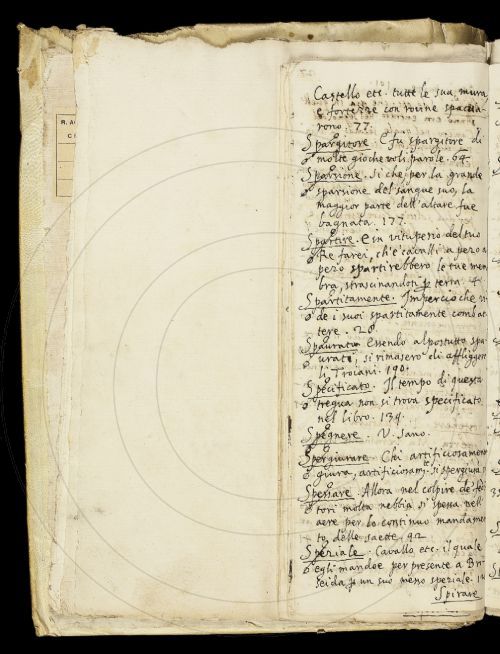 R. AC
C
Castello etc. tutte le sua mura,
e fortezze con rovine spaccia
rono. 77.
Spargitore. E fu spargitore di
molte giochevoli parole. 64
Sparsione. Si che per la grande
sparsione del sangue suo, la
maggior parte dell'altare fue
bagnata. 177.
Spartire. E in vituperio del tuo
Re farei, ch'e cavalli a pezzo a
pezo spartirebbero le tue mem
bra, strascinandoti p terra. 4
Spartitamente. Impercio che
de i suoi spartitamente combat
tere. 28.
Spaurato. Essendo al postutto spa
urati, si rimasero di affliggere
li Troiani. 190.
Specificato. Il tempo di questa
tregua non si trova specificato
nel libro. 139.
Spegnere. V. sano.
Spergiurare. Chi artificiosamen
giura, artificiosam.te si spergiura
Spessare. Allora nel colpire de
tori molta nebbia si spessa nell'
aere per lo continuo mandamen
to, delle saette. 92
Speziale. Cavallo etc. il quale
egli mandoe per presente a Bri
seida p un suo messo speziale.
Spirare